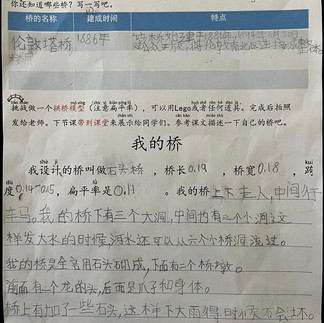 你还知道哪些桥？写一写吧。
桥的名称 建成时间 特点
伦敦塔桥 1886年
挑战做一个拱桥模型（注意扁平率），可以用Lego或者任何道具。完成后拍照
发给老师。下节课带到课堂来展示给同学们。参考课文描述一下自己的桥吧。
我的桥
我设计的桥叫做石头桥，桥长0.19，桥宽0.18，跨
度0.14-0.15，扁平率是0.11。我的桥上下走人，中间行
车马。我的桥下有三个大洞，中间也有三个小洞，这
样发大水的时候，河水还可以从六个小桥洞流过。
我的桥是全名用石头砌成，下面有三个桥墩。
前面有一个龙的头，后面是爪子和身体。
桥上有加了一些石头，这样下大雨得时候不会坏。